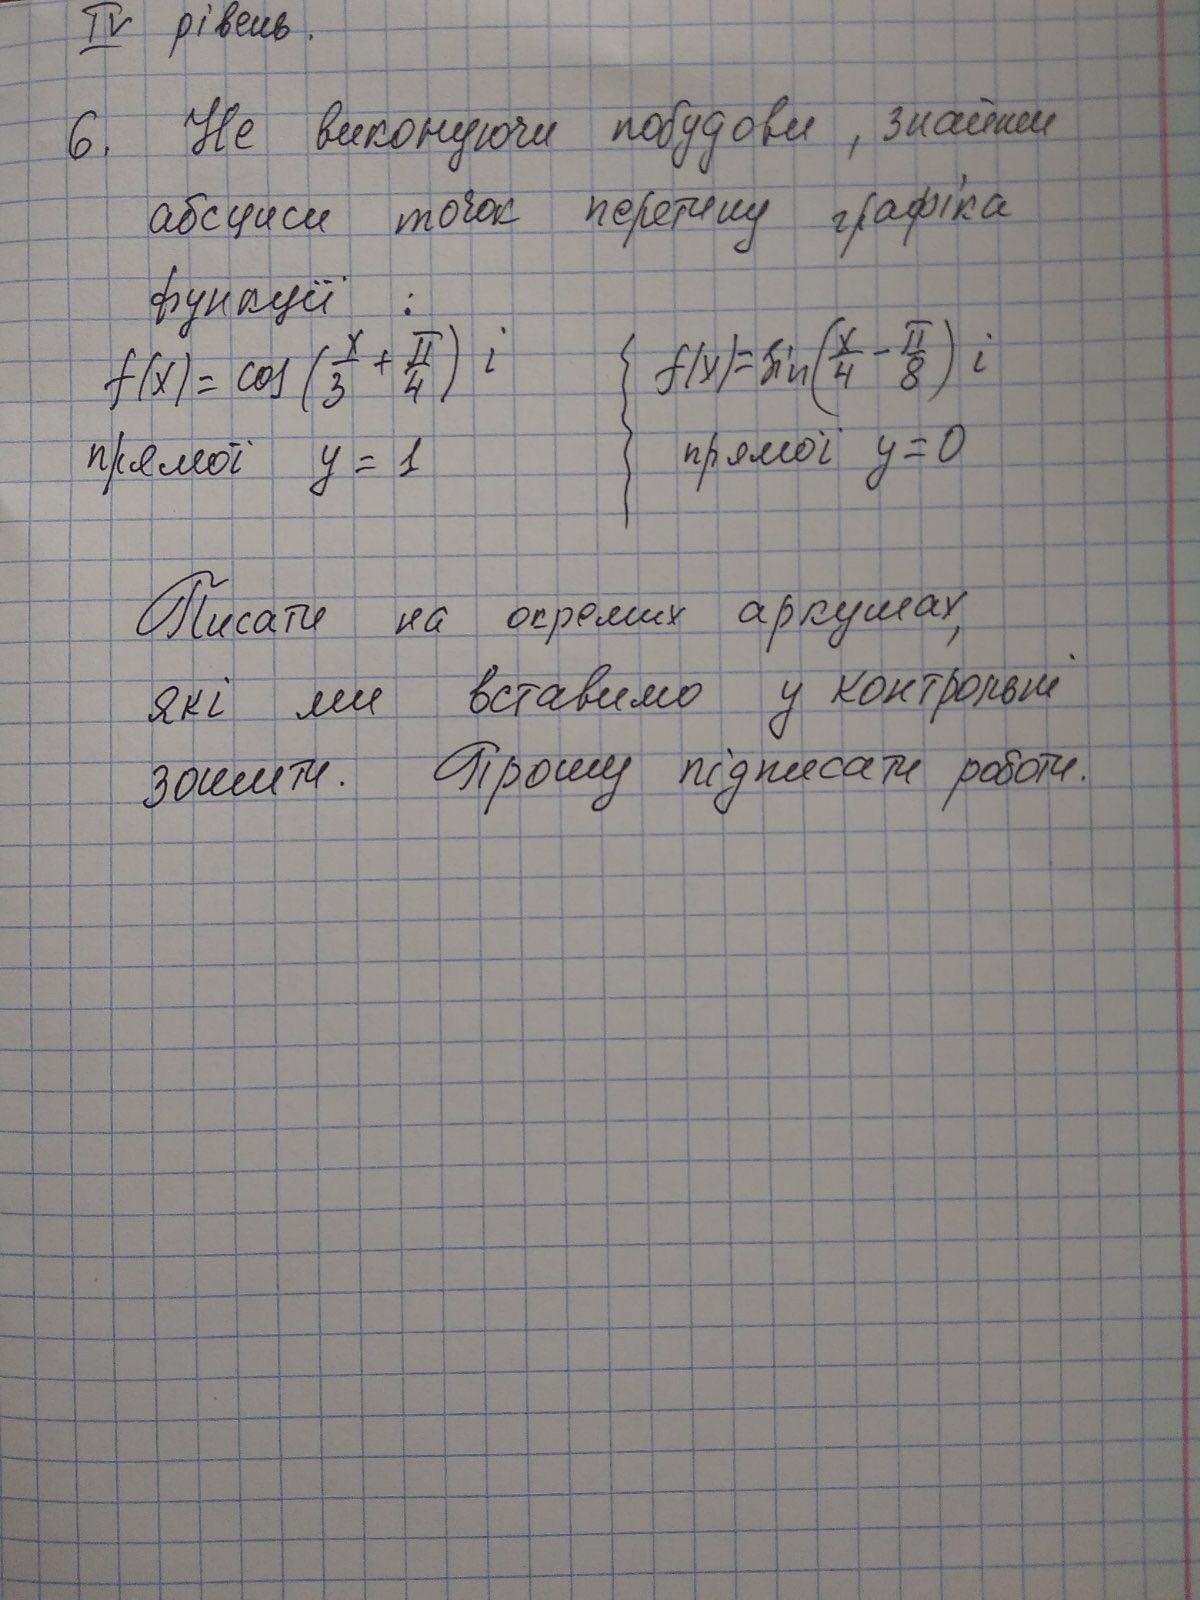 IV рівень.
6. Не виконуючи побудови, знайти
абсциси точок перетину графіка
функції :
f(x) = cos (x/3 + π/4) і
прямої y = 1
f(x) = sin (x/4 - π/8) і
прямої y = 0
Писати на окремих аркушах,
які ми вставимо у контрольні
зошити. Прошу підписати роботи.